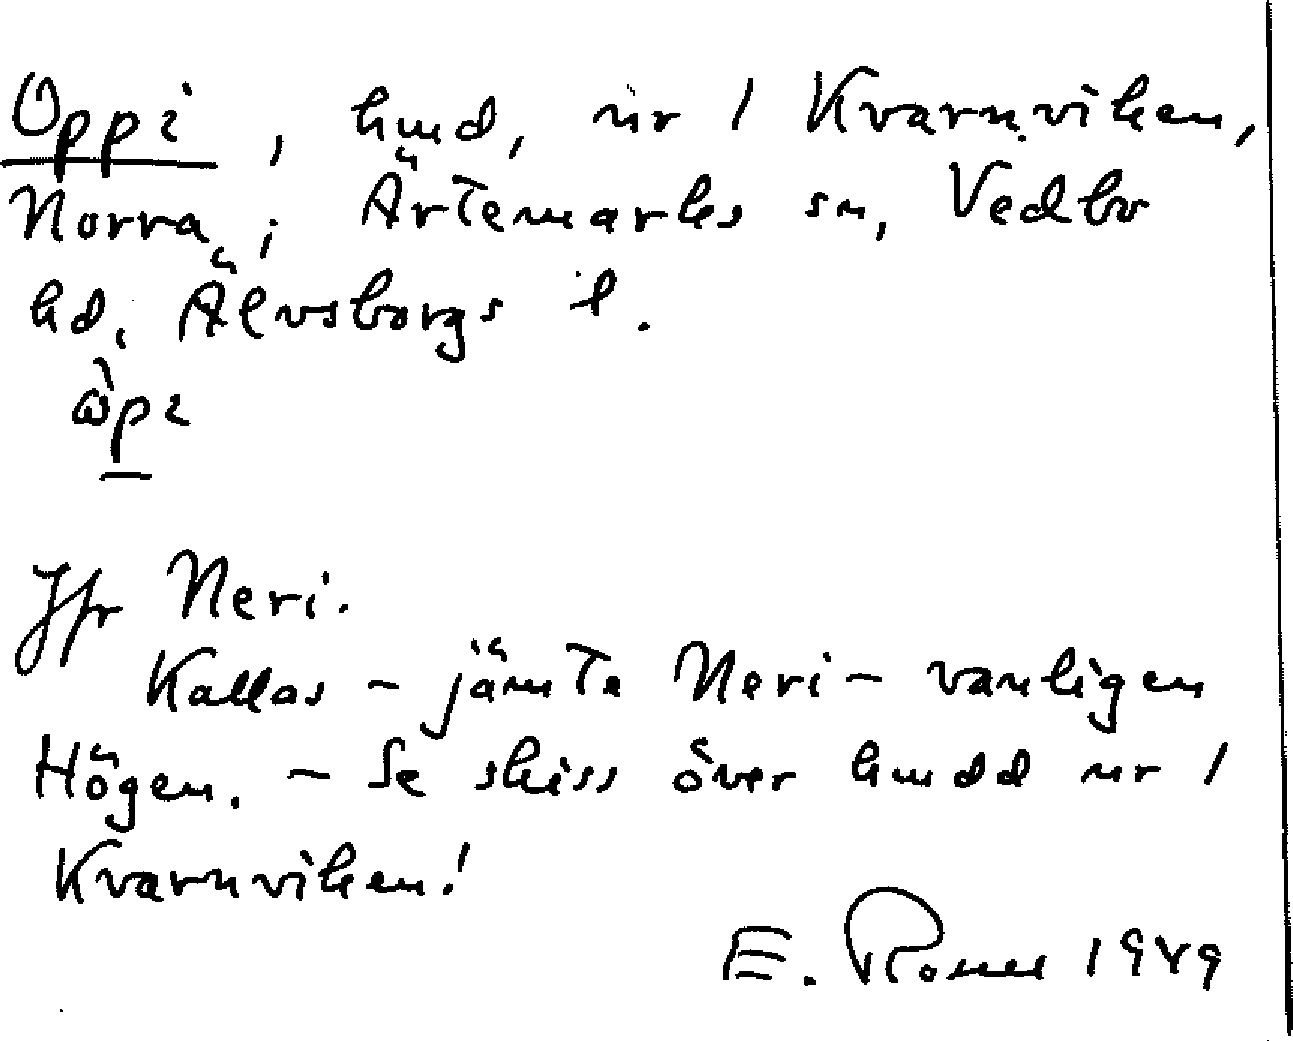 Oppi, hmd, nr 1 Kvarnviken,
Norra, i Ärtemarks sn, Vedbo
hd, Älvsborgs l.
Jfr Neri.
Kallas – jämte Neri – vanligen
Högen. – Se skiss över hmdd nr 1
Kvarnviken!
E. 1949